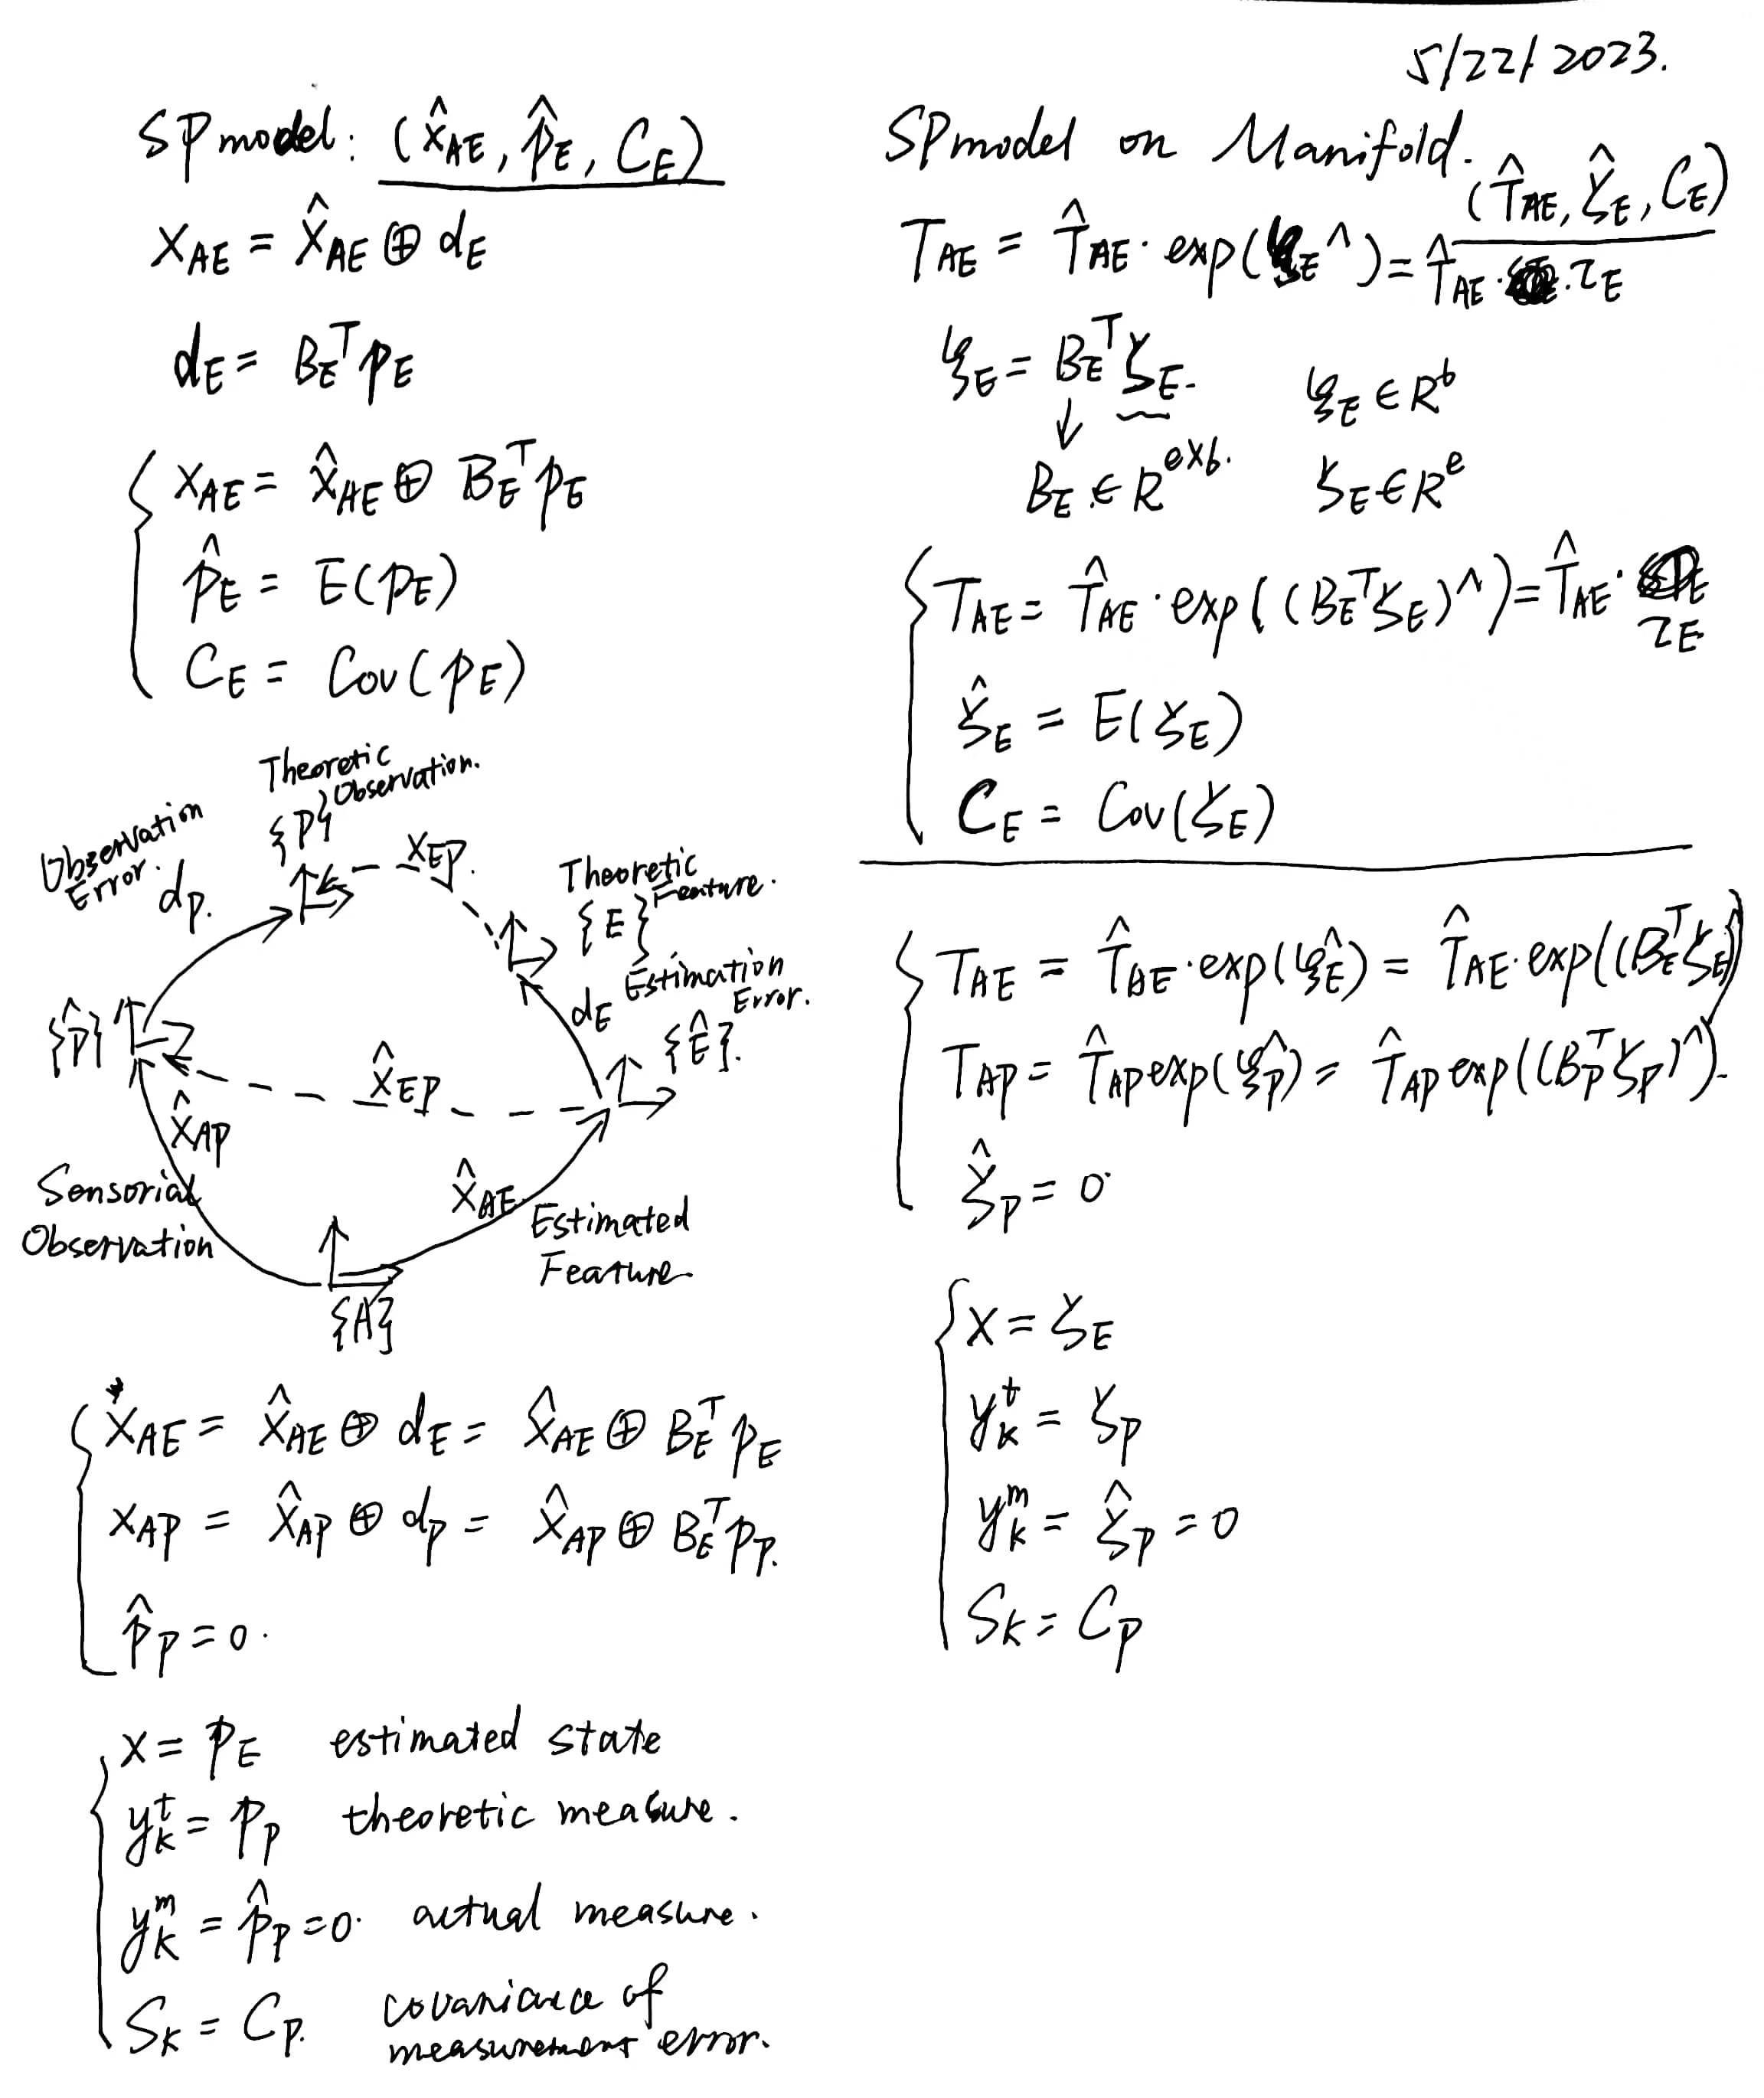 5/22/2023.
SPmodel: (x̂_AE, p̂_E, C_E)
x_AE = x̂_AE ⊕ d_E
d_E = B_E^T p_E
x_AE = x̂_AE ⊕ B_E^T p_E
p̂_E = E(p_E)
C_E = Cov(p_E)
Theoretic
Observation.
{P}
Observation
Error.
d_P.
x_EP.
Theoretic
Feature.
{E}
d_E
Estimation
Error.
{Ê}.
{P̂}
x̂_EP
x̂_AP
Sensorial
Observation
x̂_AE
Estimated
Feature
{A}
x_AE = x̂_AE ⊕ d_E = x̂_AE ⊕ B_E^T p_E
x_AP = x̂_AP ⊕ d_P = x̂_AP ⊕ B_E^T p_P.
p̂_P = 0.
x = p_E estimated state
y_k^t = p_P theoretic measure.
y_k^m = p̂_P = 0. actual measure.
S_k = C_P. covariance of
measurement error.
SPmodel on Manifold.
(T̂_AE, ζ̂_E, C_E)
T_AE = T̂_AE · exp(ξ_E^∧) = T̂_AE · τ_E
ξ_E = B_E^T ζ_E.
ξ_E ∈ R^6
↓
B_E ∈ R^{e×6}.
ζ_E ∈ R^e
T_AE = T̂_AE · exp((B_E^T ζ_E)^∧) = T̂_AE · τ_E
ζ̂_E = E(ζ_E)
C_E = Cov(ζ_E)
T_AE = T̂_AE · exp(ξ_E^∧) = T̂_AE · exp((B_E^T ζ_E)
T_AP = T̂_AP exp(ξ_P^∧) = T̂_AP exp((B_P^T ζ_P)^∧).
ζ̂_P = 0
x = ζ_E
y_k^t = ζ_P
y_k^m = ζ̂_P = 0
S_k = C_P